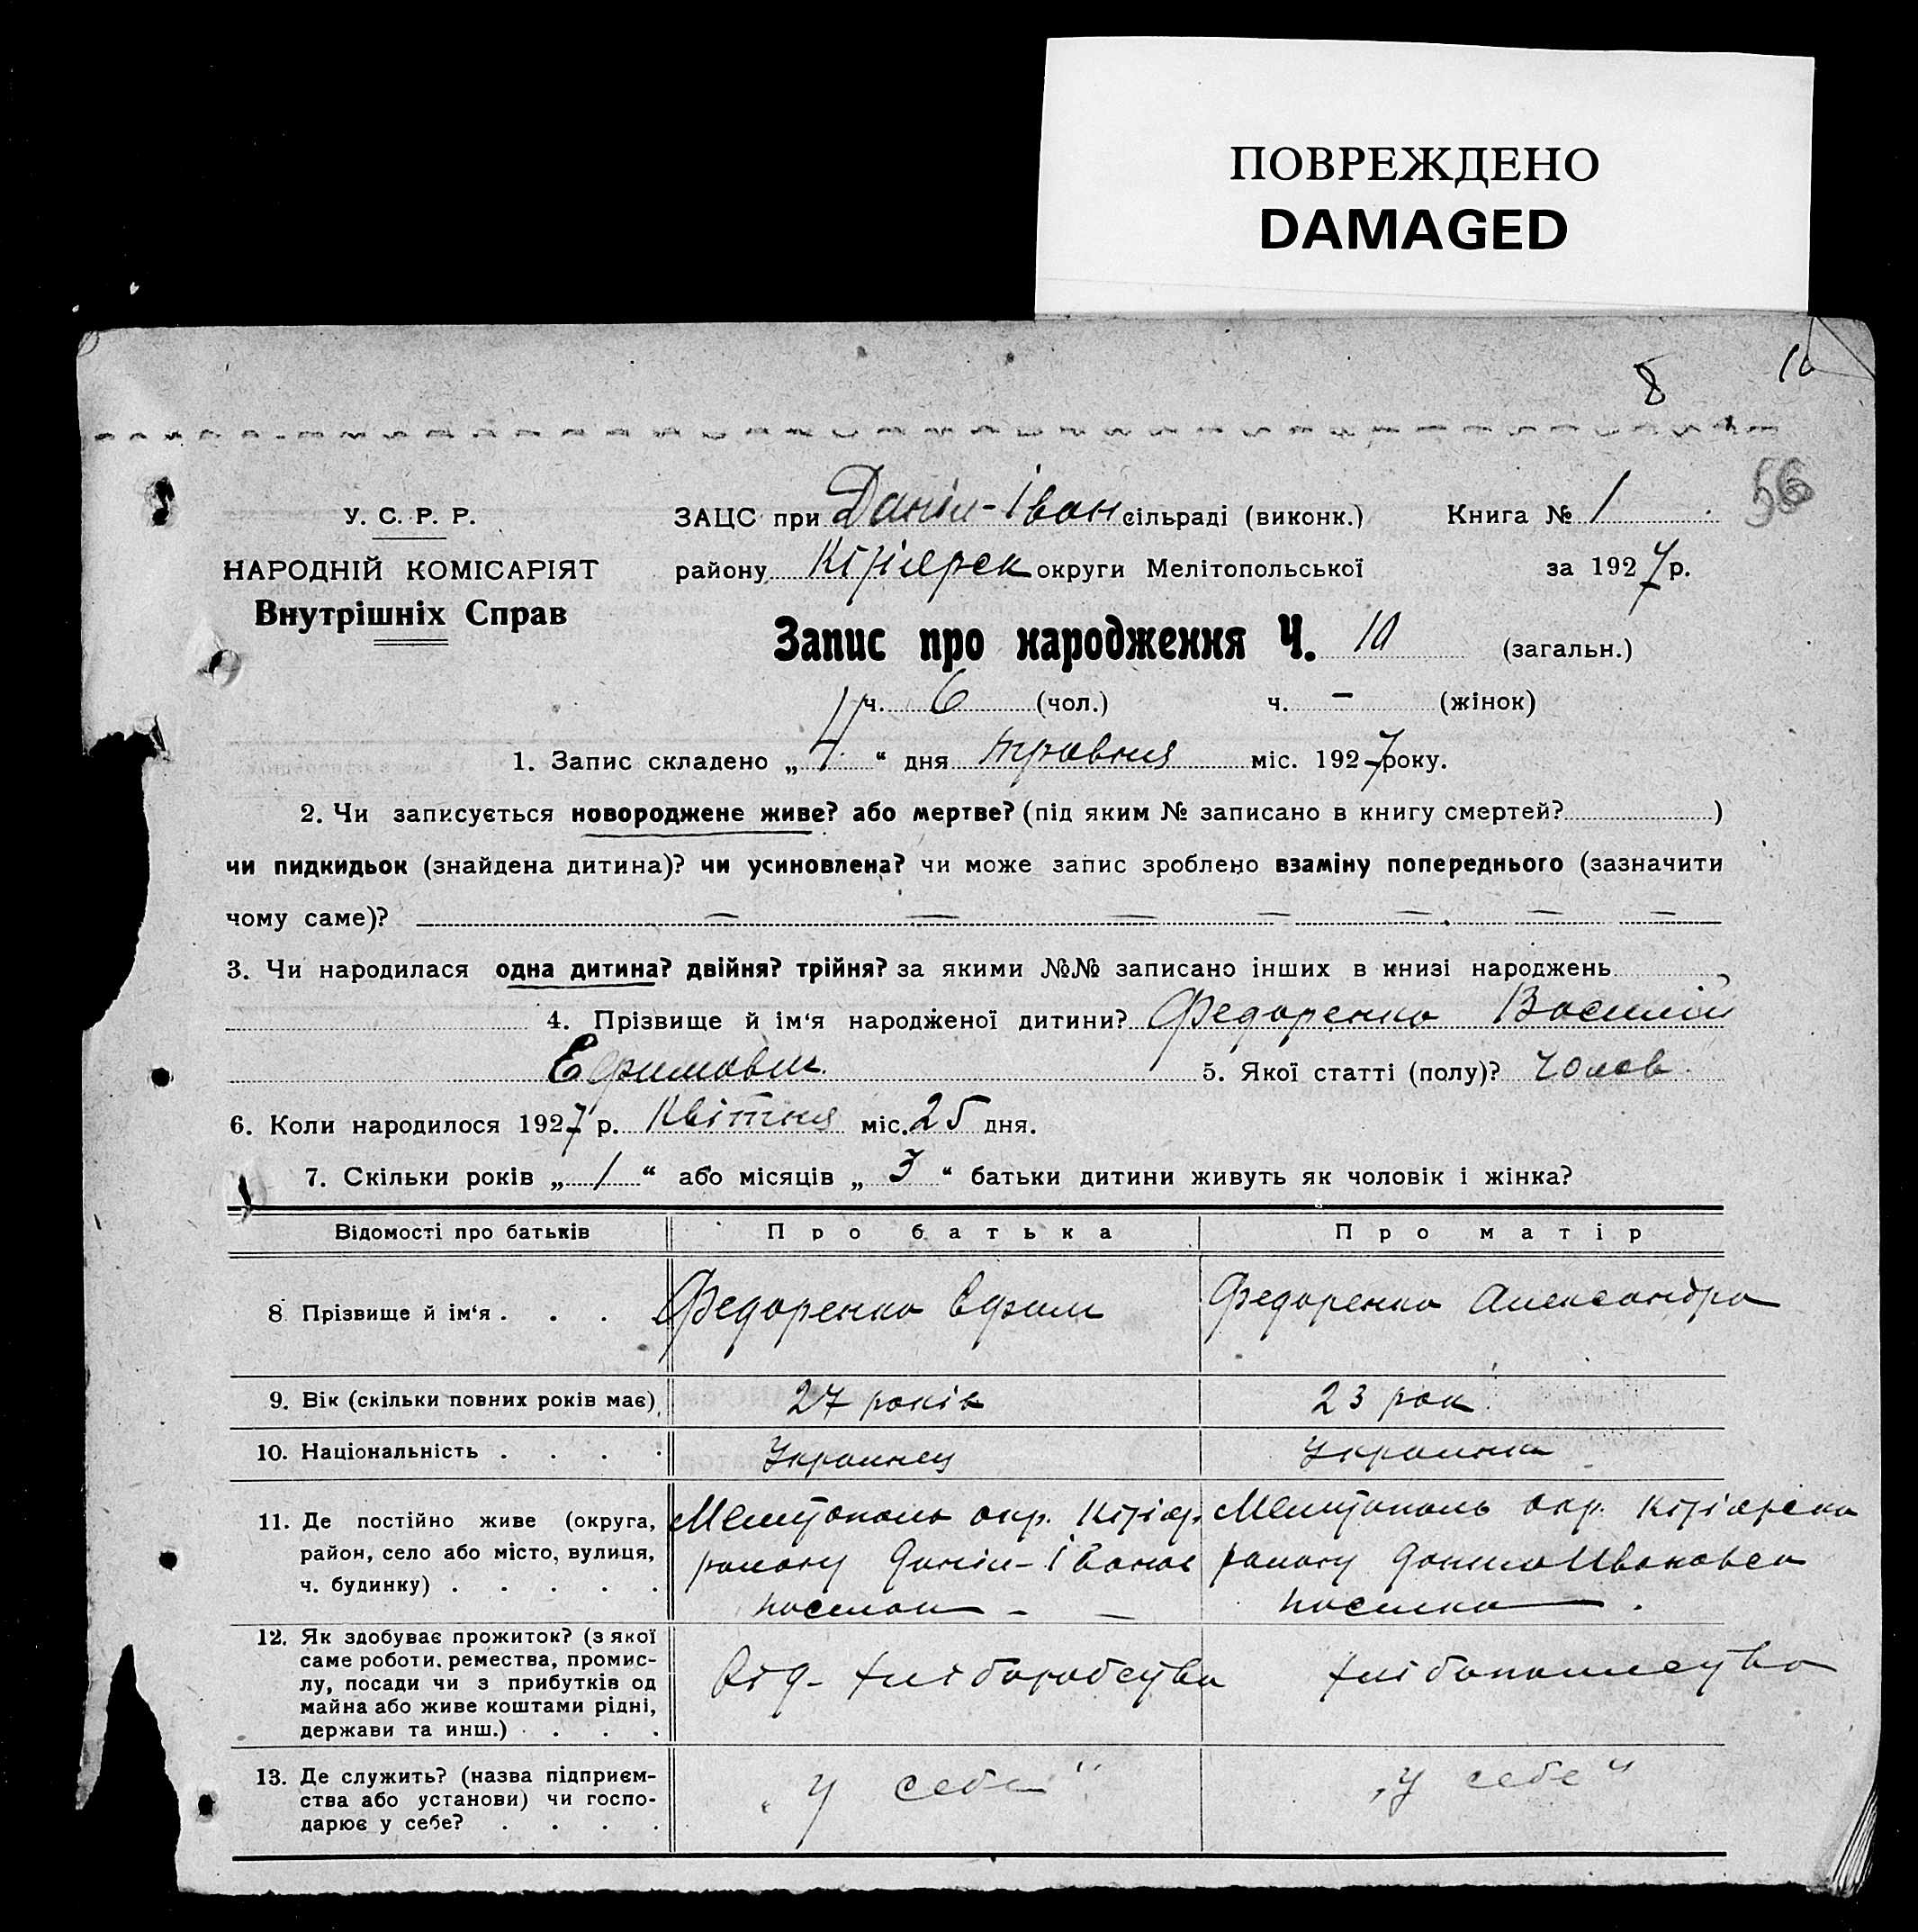 ПОВРЕЖДЕНО
DAMAGED
8 10
56
У. С. Р. Р.
НАРОДНІЙ КОМІСАРІЯТ
Внутрішніх Справ
ЗАЦС при Даніл-Іван сільраді (виконк.) Книга № 1
району Кізіярск округи Мелітопольської за 1927 р.
Запис про народження Ч. 10 (загальн.)
ч. 6 (чол.) ч. — (жінок)
1. Запис складено „ 4 “ дня травня міс. 1927 року.
2. Чи записується новороджене живе? або мертве? (під яким № записано в книгу смертей? )
чи пидкидьок (знайдена дитина)? чи усиновлена? чи може запис зроблено взаміну попереднього (зазначити
чому саме)? — — — — — — —
3. Чи народилася одна дитина? двійня? трійня? за якими №№ записано інших в книзі народжень
4. Прізвище й ім‘я народженої дитини? Федоренко Василій
Ефимович 5. Якої статті (полу)? чолов.
6. Коли народилося 1927 р. Квітня міс. 25 дня.
7. Скільки років „ 1 “ або місяців „ 3 “ батьки дитини живуть як чоловік і жінка?
Відомості про батьків Про батька Про матір
8 Прізвище й ім‘я . . . Федоренко Ефим Федоренко Александра
9. Вік (скільки повних років має) 27 років 23 рок.
10. Національність . . . . Украинец Украинка
11. Де постійно живе (округа, Мелитополь окр. Кізіяр. Мелитополь окр. Кізіярска
район, село або місто, вулиця, району Даніл-Іванов району Данило Ивановка
ч. будинку) . . . . . поселок — — поселка — .
12. Як здобуває прожиток? (з якої
саме роботи, ремества, промис-
лу, посади чи з прибутків од Від- хліборобства хлібопашества
майна або живе коштами рідні,
держави та инш.) . . . .
13. Де служить? (назва підприєм- „У себе“ „У себе“
ства або установи) чи госпо-
дарює у себе? . . . .